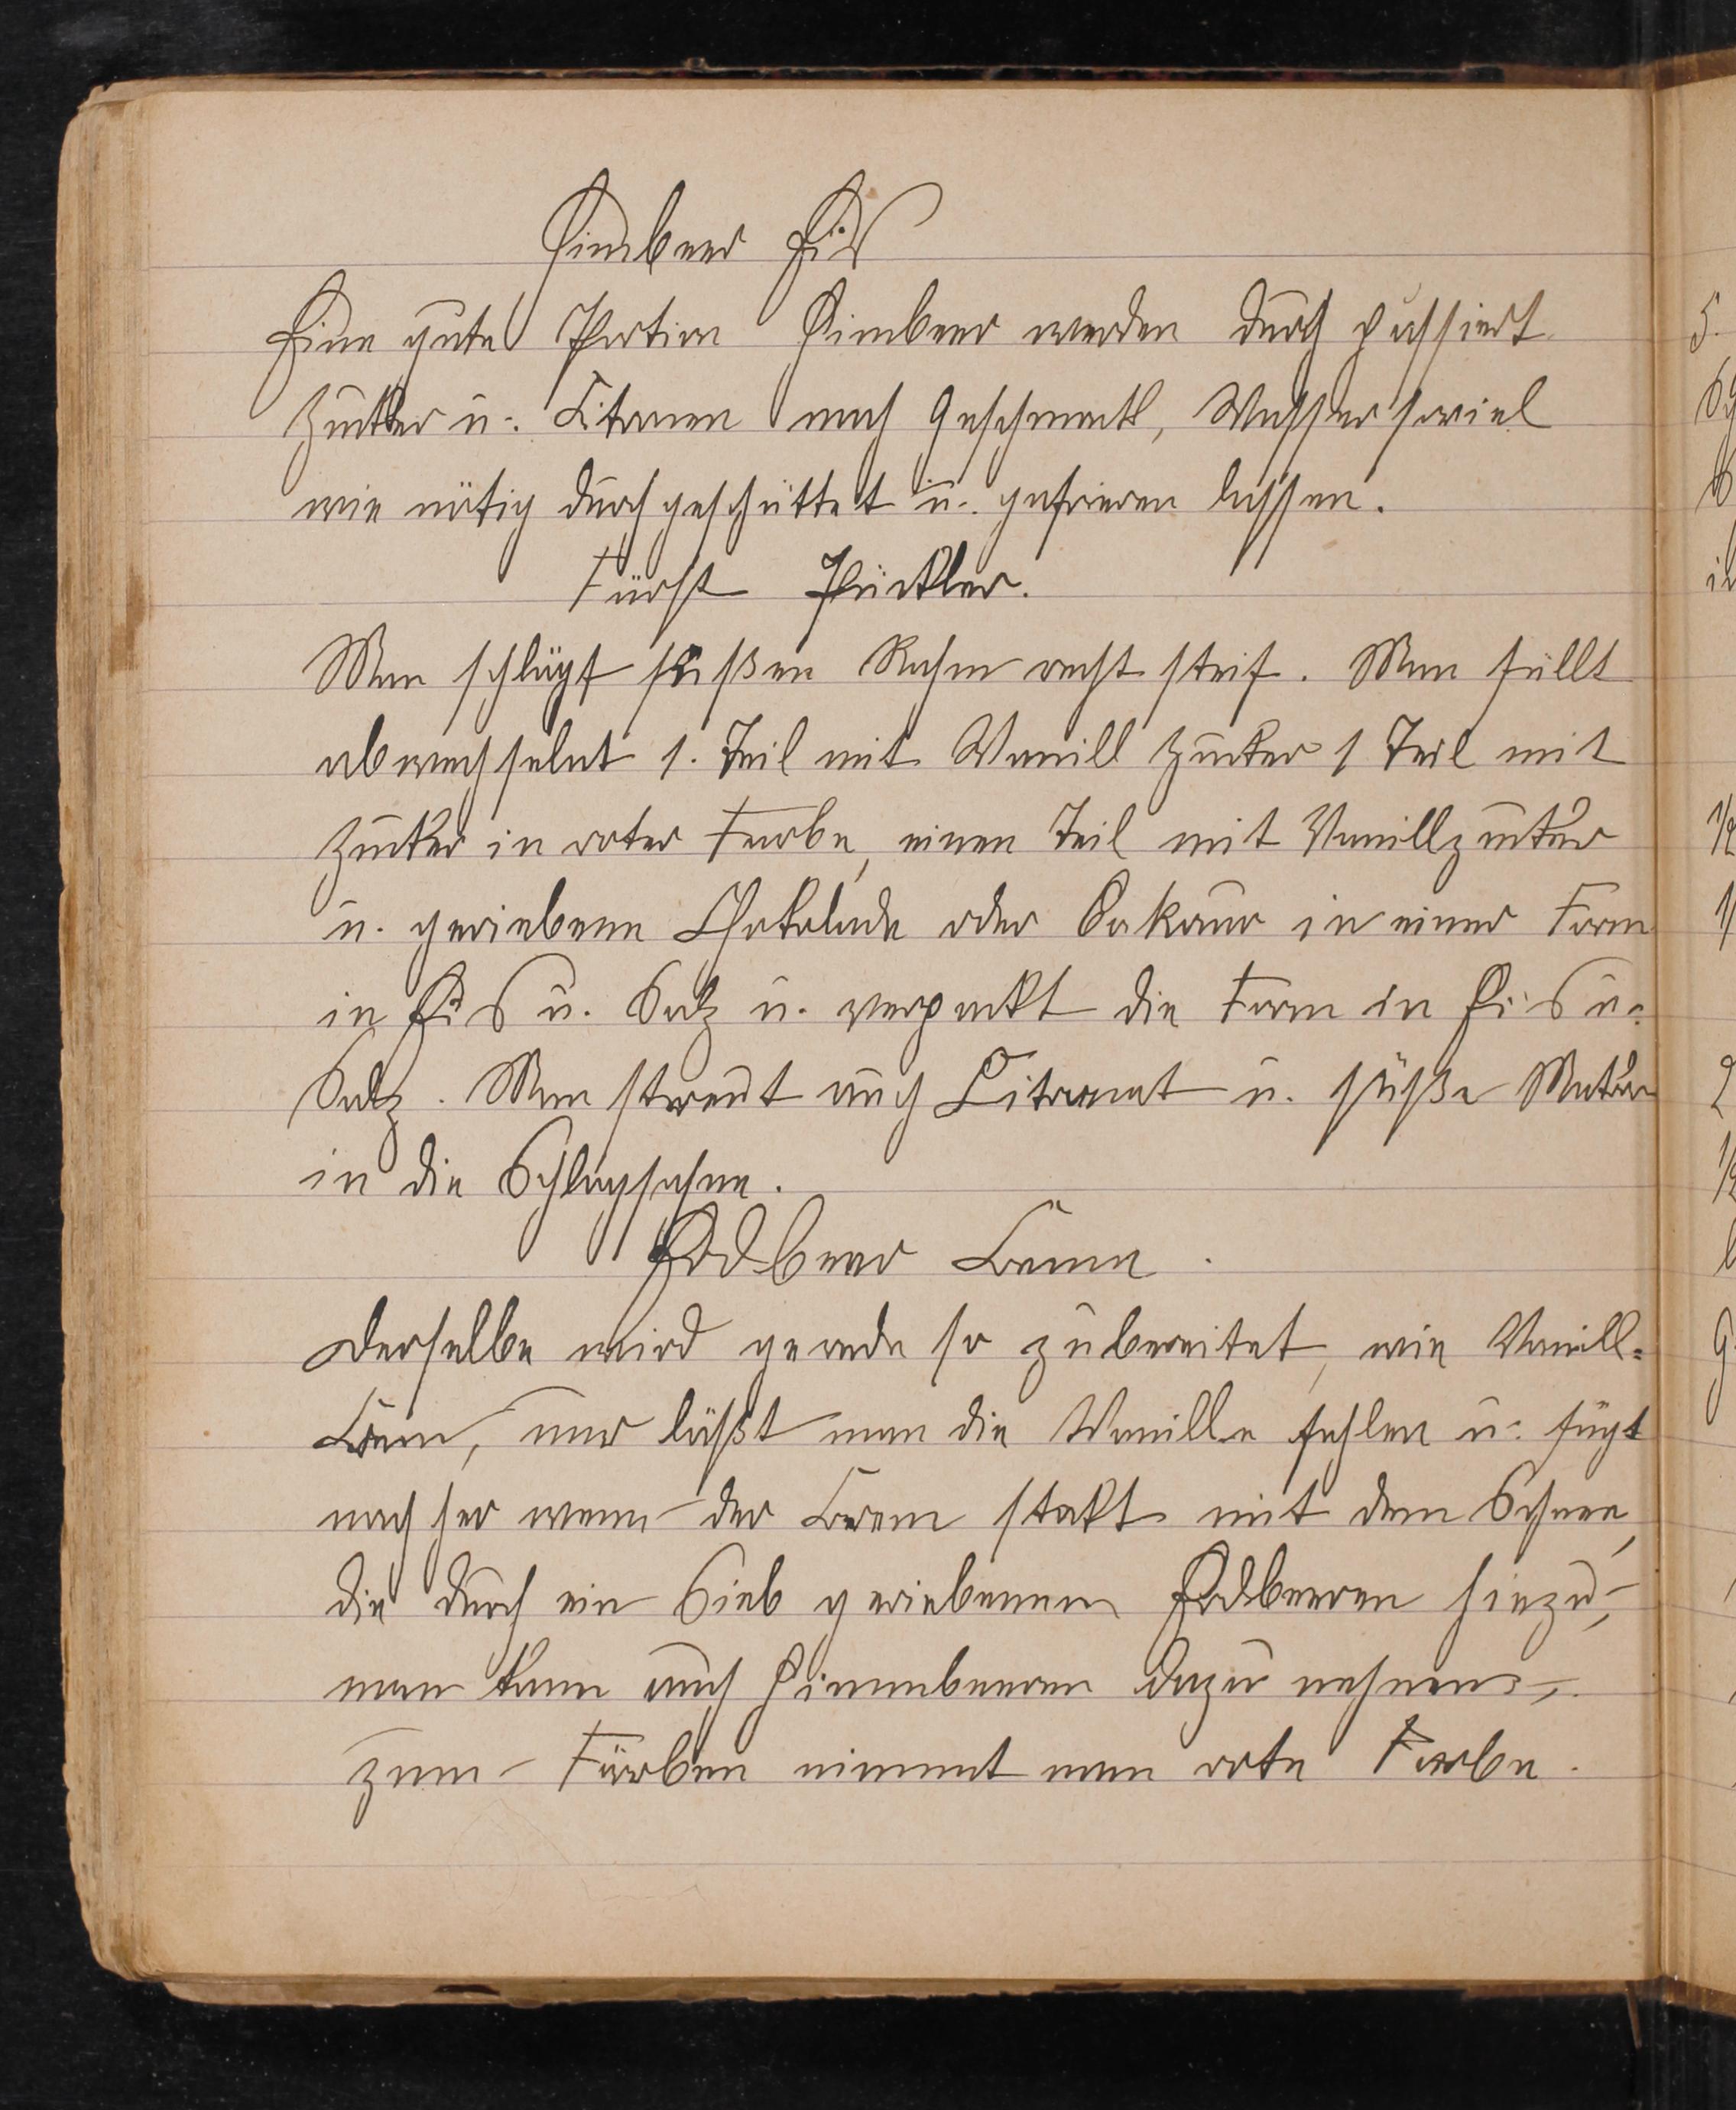 Himbeer Eis
Eine gute Portion Himbeer werden durch passiert
Zucker u. Citronen nach Geschmack, Wasser soviel
wie nötig durchgeschüttet u. gefrieren lassen.
Fürst Pückler.
Man schlägt süßen Rahm recht steif. Man füllt
abwechselnt 1. Teil mit Vanill Zucker 1 Teil mit
Zucker in roter Farbe, einen Teil mit Vanillzucker
u. geriebene Chokolade oder Kakauo in einer Form
in Eis u. Salz u. verpackt die Form in Eis u.
Salz. Man streut auch Citronat u. süße
in die Schlagsahne.
Erdbeer Creme.
Derselbe wird gerade so zubereitet, wie Vanill-
Crem, nur läßt man die Vanille fehlen u. fügt
nachher wenn der Crem stakt mit dem Schnee,
die durch ein Sieb geriebenen Erdbeeren hinzu,
man kann auch Himmbeeren dazu nehmen,
zum Färben nimmt man rote Farbe.